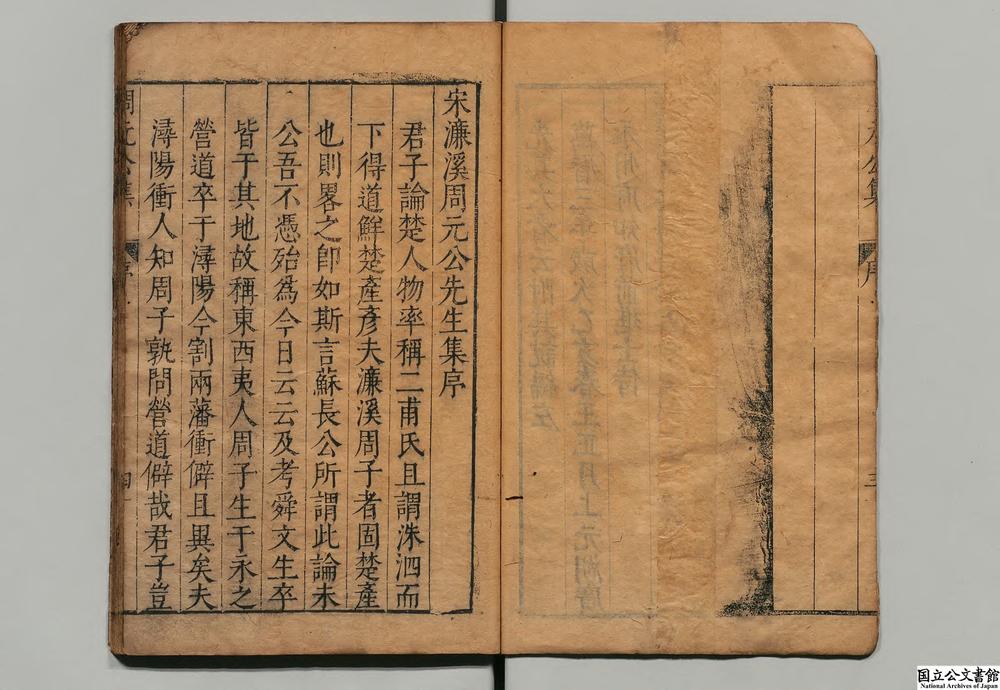 宋濂溪周元公先生集序
君子論楚人物率稱二甫氏且謂洙泗而
下得道鮮楚產彥夫濂溪周子者固楚產
也則畧之卽如斯言蘇長公所謂此論未
公吾不憑殆為今日云云及考舜文生卒
皆于其地故稱東西夷人周子生于永之
營道卒于潯陽今割兩藩衝僻且異矣夫
潯陽衝人知周子孰問營道僻哉君子豈
周元公集
序
四
元公集
序
三
国立公文書館
National Archives of Japan